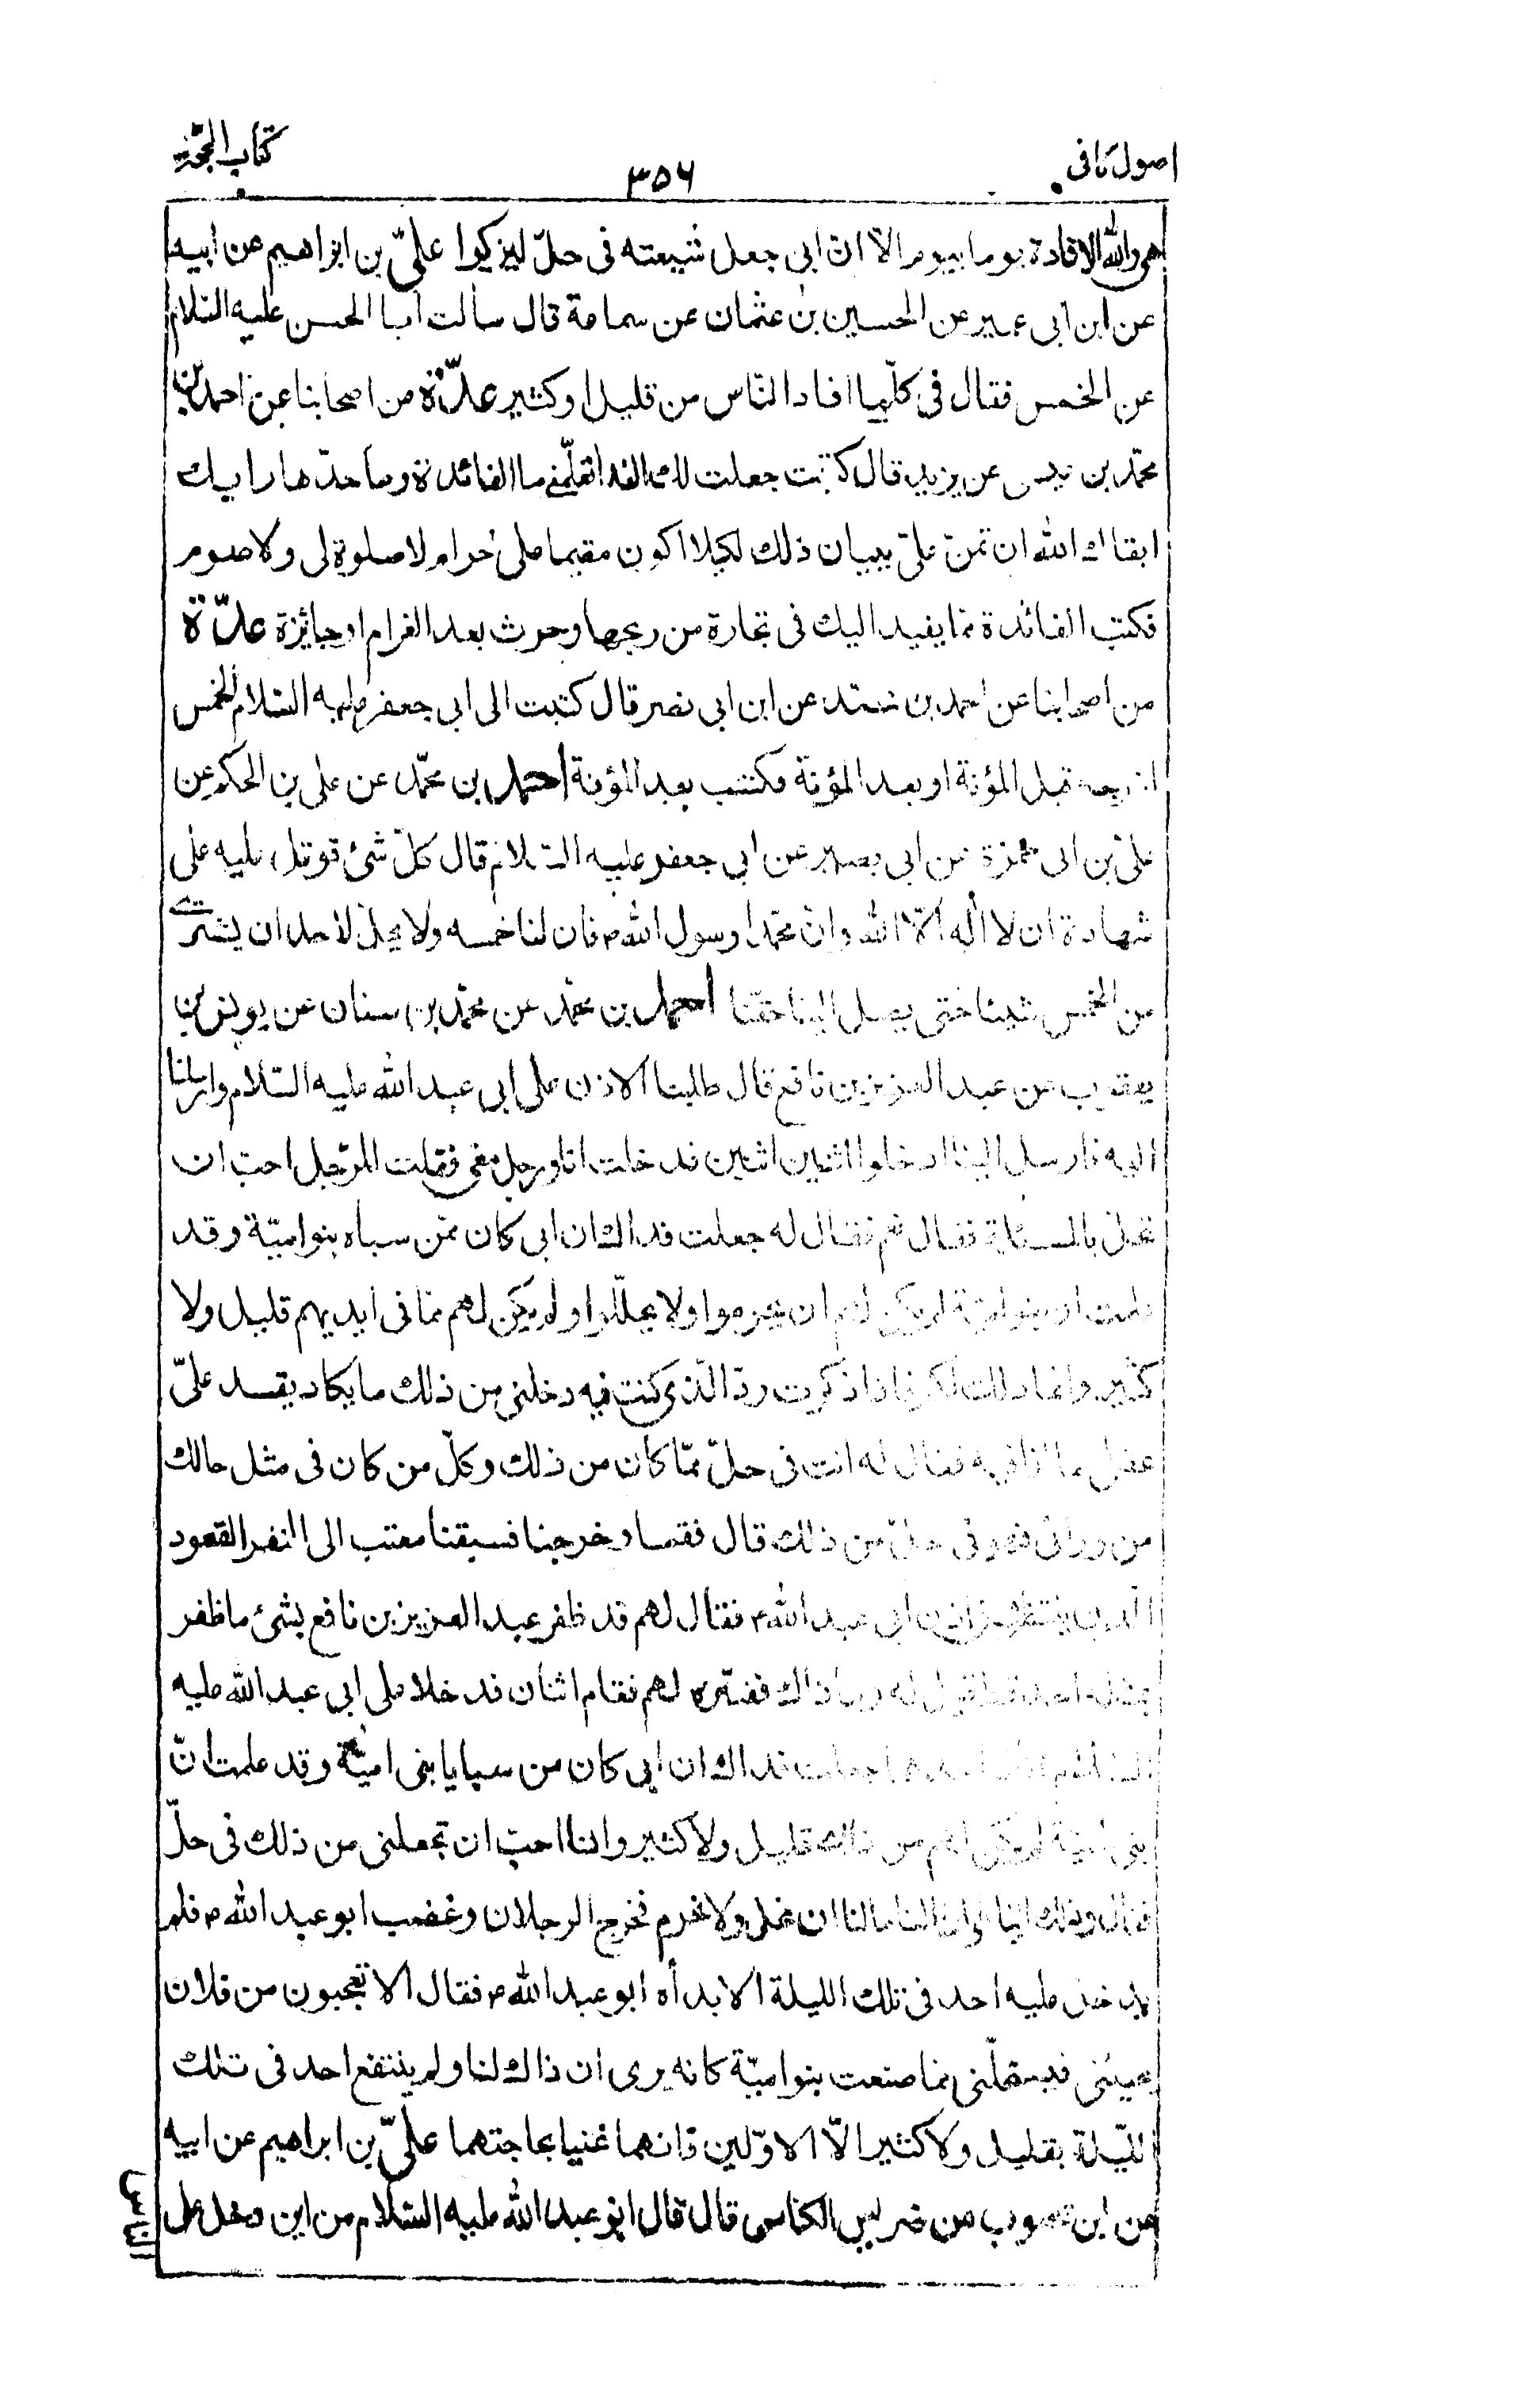 اصول كافى
٣٥٦
كتاب الحجّة
هى والله الافادة يوما بيوم الّا انّ ابى جعل شيعته فى حلّ ليزكوا علىّ بن ابراهيم عن ابيه
عن ابن ابى عمير عن الحسين بن عثمان عن سماعة قال سألت ابا الحسن عليه السّلام
عن الخمس فقال فى كلّ ما افاد النّاس من قليل او كثير عدّة من اصحابنا عن احمد بن
محمّد بن عيسى عن يزيد قال كتبت جعلت لك الفدا تعلّمنى ما الفائدة وما حدّها رايك
ابقاك الله ان تمنّ علىّ ببيان ذلك لكيلا اكون مقيما على حرام لا صلوة لى ولا صوم
فكتب الفائدة ممّا يفيد اليك فى تجارة من ربحها وحرث بعد الغرام او جائزة عدّة
من اصحابنا عن احمد بن محمّد عن ابن ابى نصر قال كتبت الى ابى جعفر عليه السّلام الخمس
اخرجه قبل المؤنة او بعد المؤنة فكتب بعد المؤنة احمد بن محمّد عن على بن الحكم عن
علىّ بن ابى حمزة عن ابى بصير عن ابى جعفر عليه السّلام قال كلّ شئ قوتل عليه على
شهادة ان لا اله الّا الله وانّ محمّدا رسول الله ص فان لنا خمسه ولا يحلّ لاحد ان يشترى
من الخمس شيئا حتى يصل الينا حقّنا احمد بن محمّد عن محمّد بن سنان عن يونس بن
يعقوب عن عبد العزيز بن نافع قال طلبنا الاذن على ابى عبد الله عليه السّلام وارسلنا
اليه فارسل الينا ادخلوا اثنين اثنين فدخلت انا ورجل معى فقلت للرّجل احبّ ان
تحلّ بالمسئلة فقال نعم فقال له جعلت فداك ان ابى كان ممّن سباه بنو اميّة وقد
علمت ان بنو اميّة لم يكن لهم ان يحرموا ولا يحلّلوا ولم يكن لهم ممّا فى ايديهم قليل ولا
كثير وانما ذلك لكم فاذا ذكرت ردّ الّذى كنت فيه دخلنى من ذلك ما يكاد يفسد علىّ
عقلى ما انا فيه فقال له انت فى حلّ ممّا كان من ذلك وكلّ من كان فى مثل حالك
من ورائى فهو فى حلّ من ذلك قال فقمنا وخرجنا فسبقنا معتب الى النفر القعود
الّذين ينتظرون اذن ابى عبد الله ع فقال لهم قد ظفر عبد العزيز بن نافع بشئ ما ظفر
بمثله احد قط قيل له وما ذاك ففسّره لهم فقام اثنان فدخلا على ابى عبد الله عليه
السّلام فقال احدهما جعلت فداك ان ابى كان من سبايا بنى اميّة وقد علمت انّ
بنى اميّة لم يكن لهم من ذلك قليل ولا كثير وانا احبّ ان تجعلنى من ذلك فى حلّ
فقال وذلك الينا ما ذلك الينا ما لنا ان نحلّ ولا نحرم فخرج الرجلان وغضب ابو عبد الله ع فلم
يدخل عليه احد فى تلك الليلة الا بدأه ابو عبد الله ع فقال الا تعجبون من فلان
يجيئنى فيستحلّنى ممّا صنعت بنو اميّة كانه يرى ان ذاك لنا ولم ينتفع احد فى تلك
اللّيلة بقليل ولا كثير الّا الاوّلين فانهما غنيا بحاجتهما علىّ بن ابراهيم عن ابيه
عن ابن محبوب عن ضريس الكناسى قال قال ابو عبد الله عليه السّلام من اين دخل على
الناس